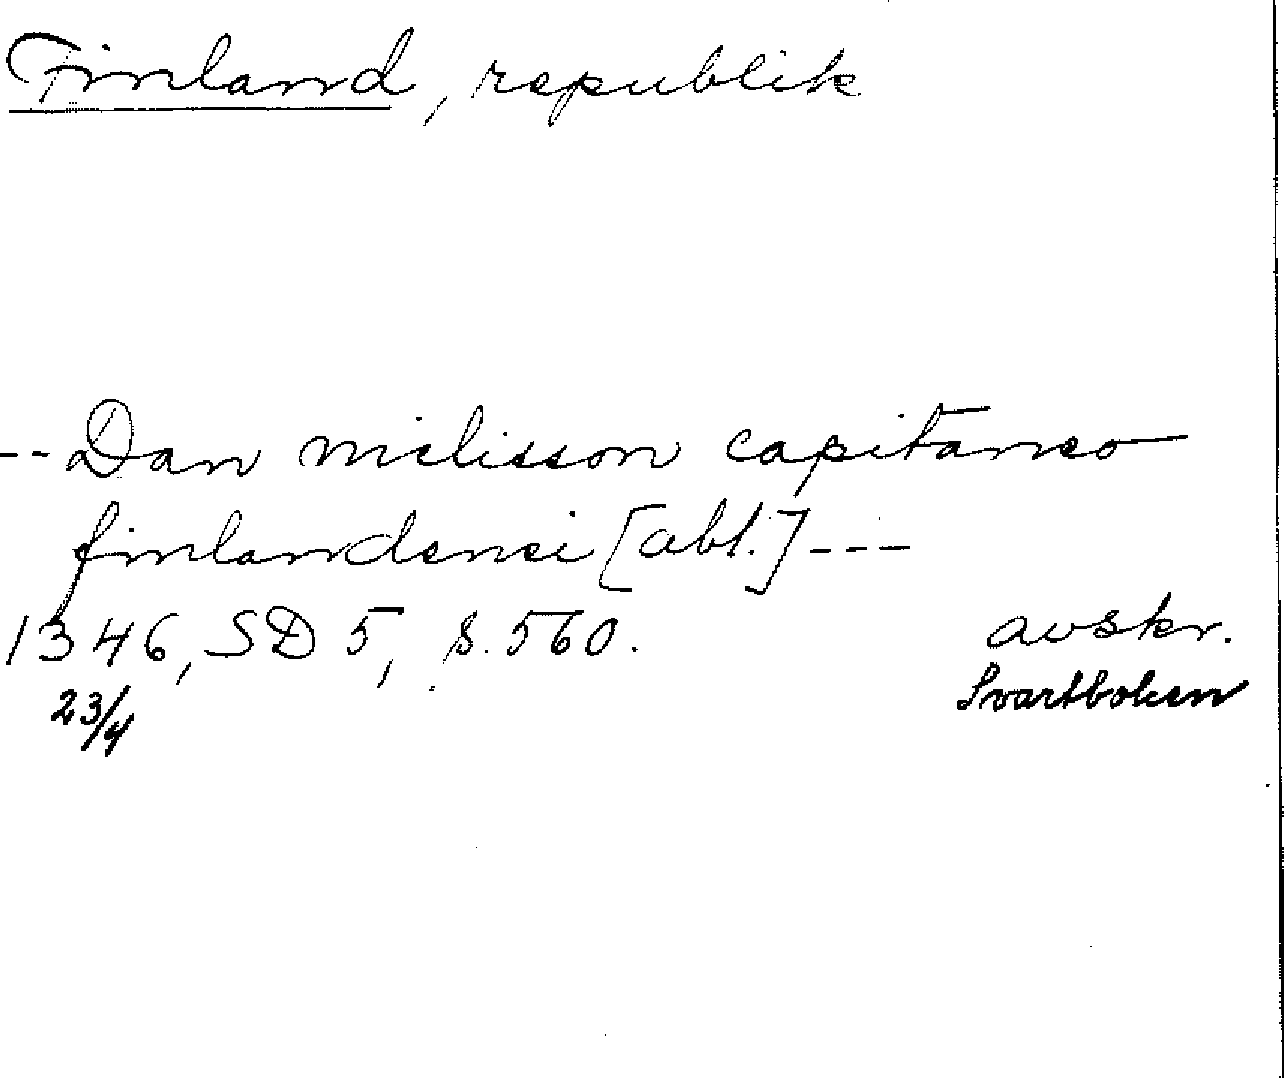 Finland, republik
--Dan niclisson capitaneo
finlandensi [abl.]---
1346, SD 5, s. 560. avskr.
23/4 Svartboken